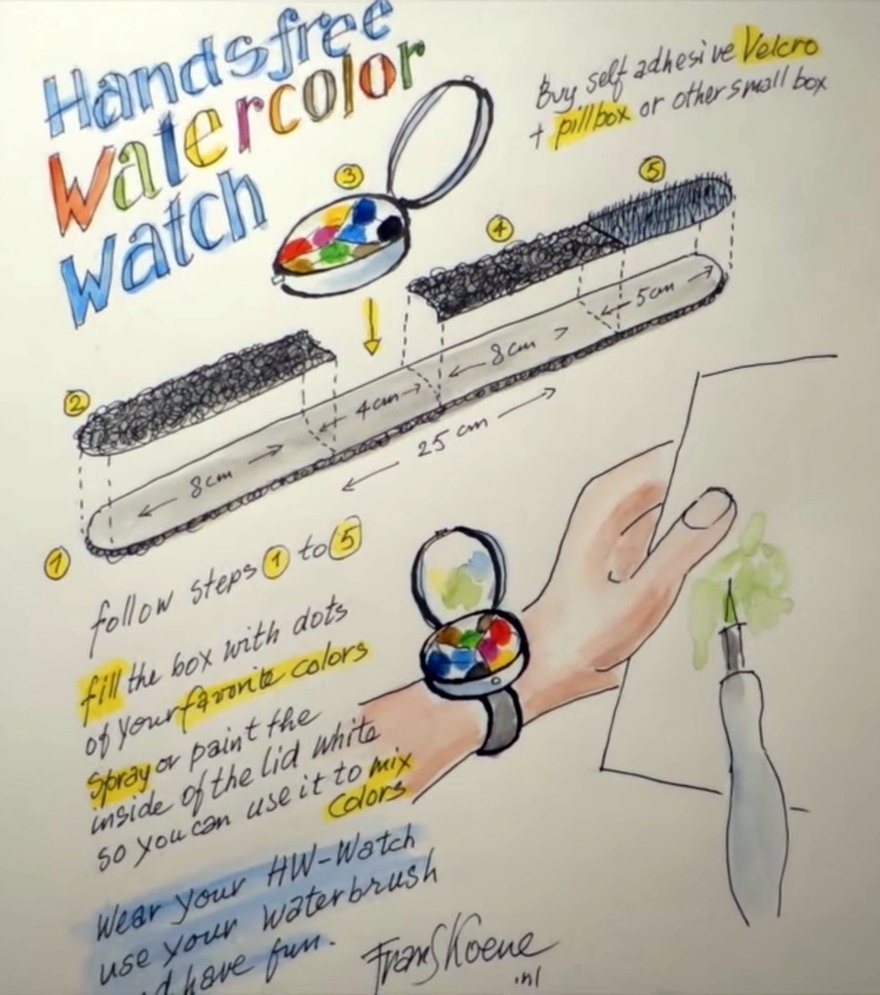 Handsfree
Watercolor
Watch
Buy self adhesive Velcro
+ pillbox or other small box
3
5
4
2
5cm
8cm
4cm
8cm
25 cm
1
follow steps 1 to 5
fill the box with dots
of your favorite colors
Spray or paint the
inside of the lid white
so you can use it to mix
colors
Wear your HW-Watch
use your waterbrush
have fun.
FransKoene
.nl